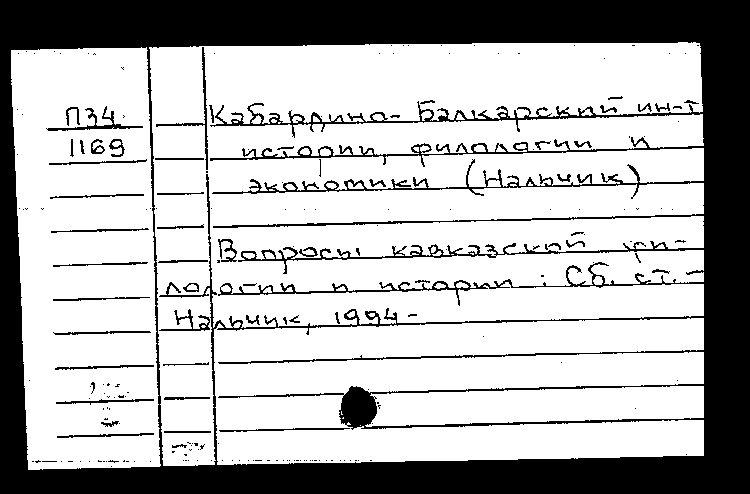 П34
1169
Кабардино-Балкарский ин-т
истории, филологии и
экономики (Нальчик)
Вопросы кавказской фи-
лологии и истории : Сб. ст. -
Нальчик, 1994 -